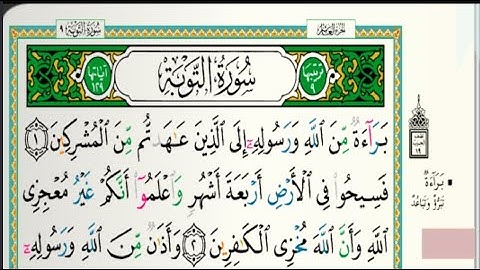 سُورَةُ التَّوْبَةِ ٩
الجزء العاشر
آيَاتُهَا ١٢٩
سُورَةُ التَّوْبَةِ
تَرْتِيبُهَا ٩
بَرَآءَةٌ مِّنَ ٱللَّهِ وَرَسُولِهِۦٓ إِلَى ٱلَّذِينَ عَٰهَدتُّم مِّنَ ٱلْمُشْرِكِينَ ١
فَسِيحُوا۟ فِى ٱلْأَرْضِ أَرْبَعَةَ أَشْهُرٍ وَٱعْلَمُوٓا۟ أَنَّكُمْ غَيْرُ مُعْجِزِى
ٱللَّهِ وَأَنَّ ٱللَّهَ مُخْزِى ٱلْكَٰفِرِينَ ٢ وَأَذَٰنٌ مِّنَ ٱللَّهِ وَرَسُولِهِۦٓ
١٩
بَرَآءَةٌ
تَبَرُّؤٌ وَتَبَاعُدٌ